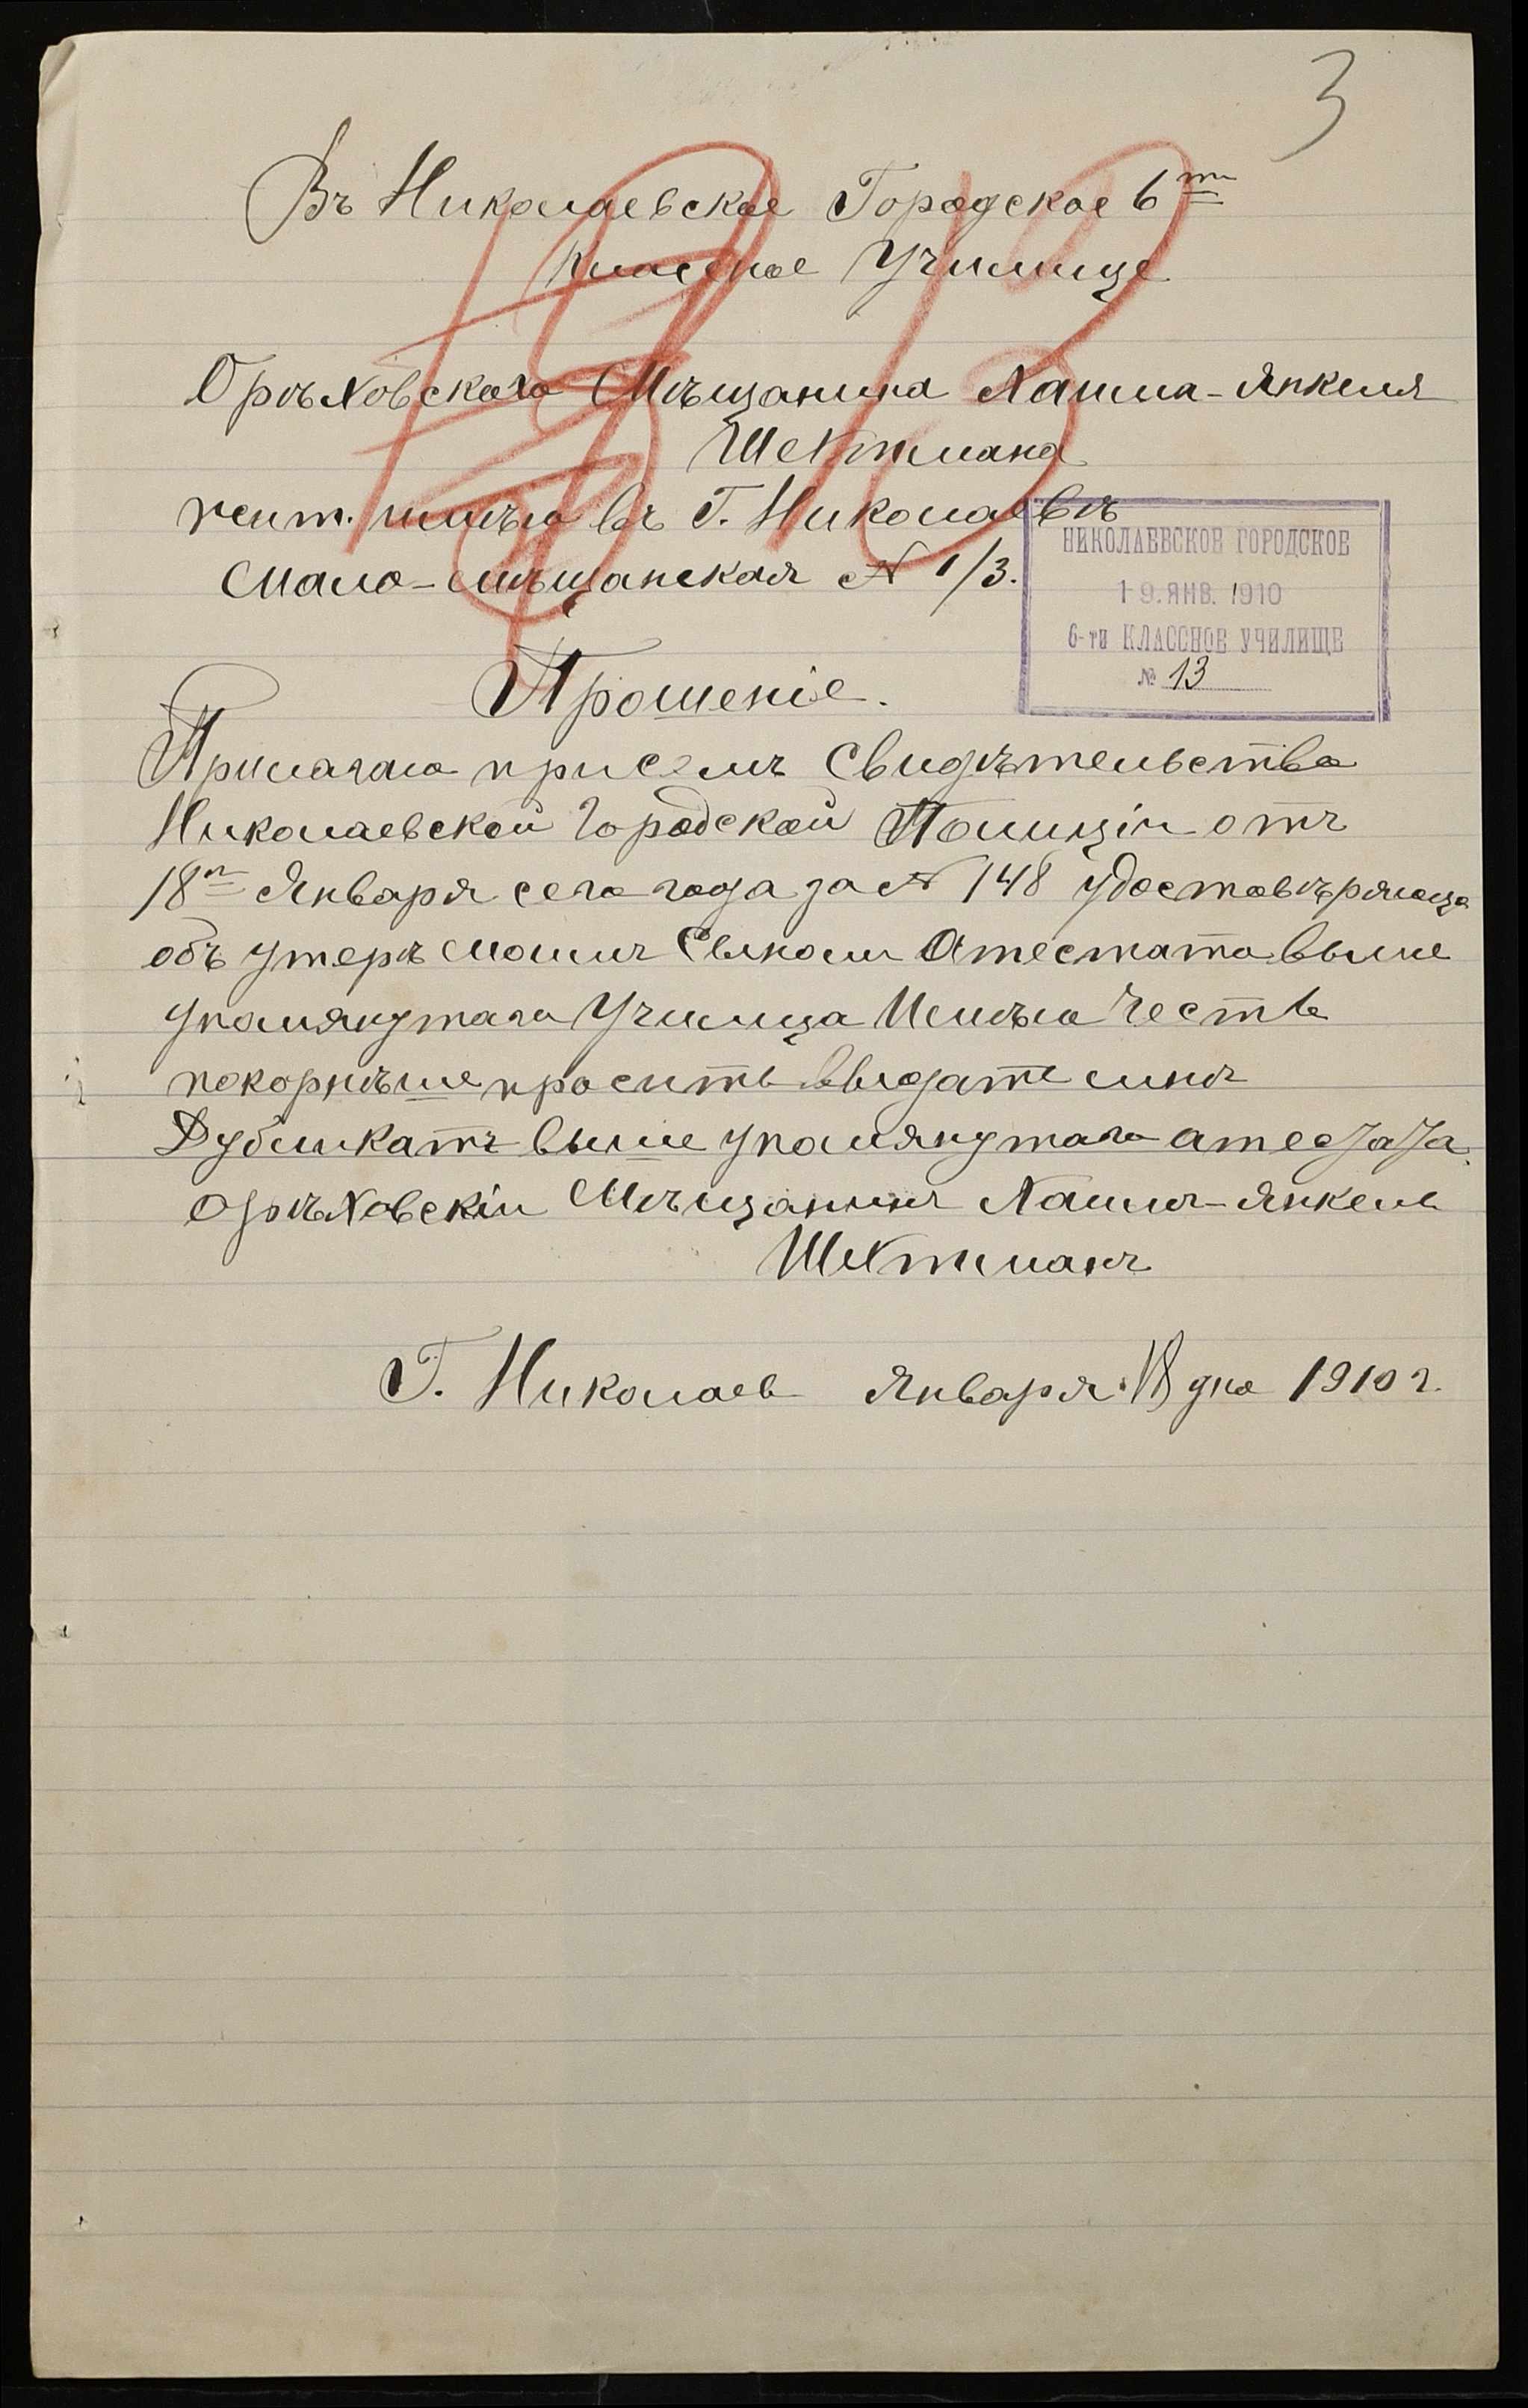 3
Въ Николаевское Городское 6ти
Классное Училище
Орѣховскаго Мѣщанина Хаима-Янкеля
Шехтмана
жит. имѣю въ Г. Николаевѣ
Мало-мѣщанская № 1/3.
НИКОЛАЕВСКОЕ ГОРОДСКОЕ
19. ЯНВ. 1910
6-ти КЛАССНОЕ УЧИЛИЩЕ
№ 13
Прошеніе.
Прилагаю при семъ Свидѣтельство
Николаевской Городской Полиціи отъ
18го Января сего года за № 148 удостовѣряюща
объ утерѣ моимъ Сыномъ Атестата выше
упомянутаго Училища Имѣю Честь
покорнѣйше просить выдать мнѣ
Дубликатъ выше упомянутаго атестата.
Орѣховскій Мѣщанинъ Хаимъ-Янкель
Шехтманъ
Г. Николаев Января 18 дня 1910 г.